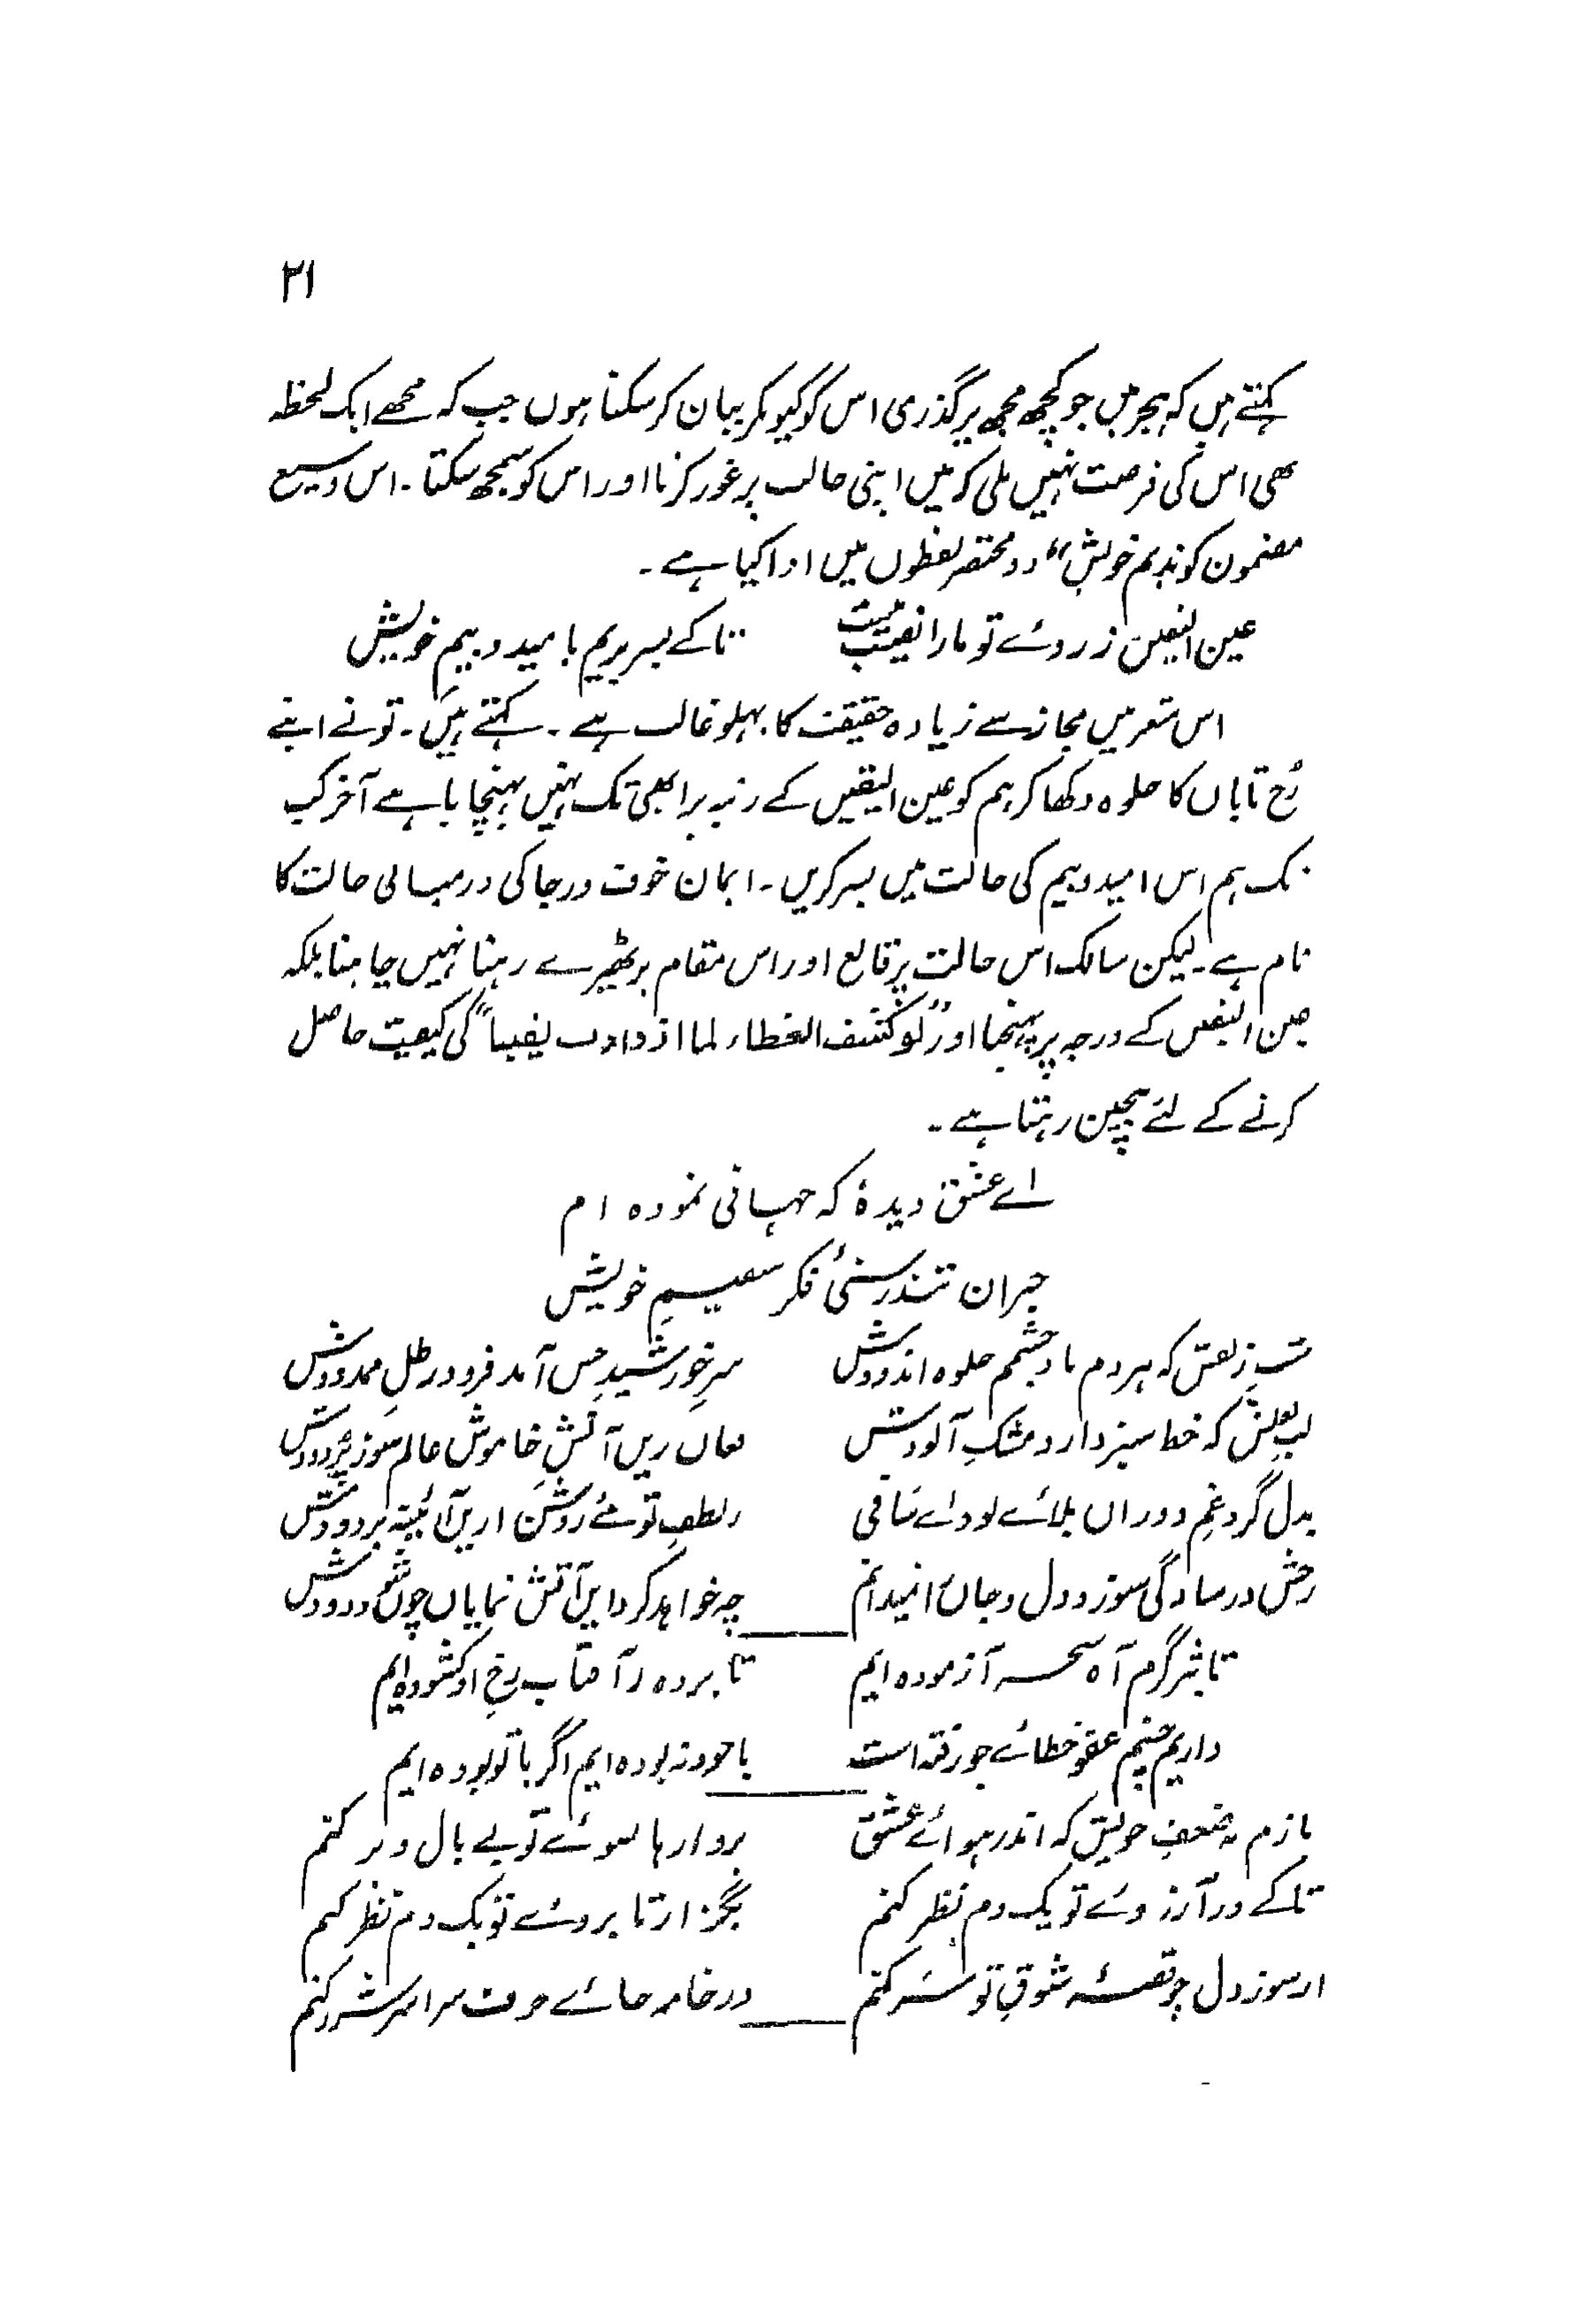 ۲۱
کہتے ہیں کہ ہجر میں جو کچھ مجھ پر گذری اس کو کیونکر بیان کر سکتا ہوں جب کہ مجھے ایک لحظہ
بھی اس کی فرصت نہیں ملی کہ میں اپنی حالت پر غور کرتا اور اس کو سمجھ سکتا ۔ اس وسیع
مضمون کو ندیم خویش” دو مختصر لفظوں میں ادا کیا ہے ۔
عین الیقین ز روئے تو ما را نصیب نیست تا کے بسر بریم با مید و بیم خویش
اس شعر میں مجاز سے زیادہ حقیقت کا پہلو غالب ہے ۔ کہتے ہیں ۔ تو نے اپنے
رُخ تاباں کا جلوہ دکھا کر ہم کو عین الیقیں کے رتبہ پر ابھی تک نہیں پہنچایا ہے آخر کب
تک ہم اس امید و بیم کی حالت میں بسر کریں ۔ ایمان خوف و رجا کی درمیانی حالت کا
نام ہے ۔ لیکن سالک اس حالت پر قانع اور اس مقام پر ٹھیرے رہنا نہیں چاہتا بلکہ
عین الیقین کے درجہ پر پہنچنا اور ”لو کشف الغطاء لما ازددت یقینا“ کی کیفیت حاصل
کرنے کے لئے بیچین رہتا ہے ۔
اے عشق دیدۂ کہ جہانی نمودہ ام
حیران تندرستیٔ فکر سقیمِ خویش
شبِ زلفش کہ ہر دم با دو چشمم جلوہ اندودش سرِ خورشیدِ حسن آمد فرود در ظلِ ممدودش
لبِ لعلش کہ خط سبز دارد مشکِ آلودش فغاں زیں آتشِ خاموش عالم سوز
بدل گردِ غمِ دوراں بلائے بود اے ساقی ز لطفِ تو مئے روشن ازیں آئینہ بزدودش
رخش در سادگی سوزد دل و جاں را نمیدانم چہ خواہد کرد ایں آتش نمایاں چوں شود دودش
تا تاثیر گرم آہ سحر آزمودہ ایم تا پردہ ز آفتاب رخِ او کشودہ ایم
داریم چشم عفو خطائے چو رفتہ است با خود نہ بودہ ایم اگر با تو بودہ ایم
نازم بہ ضعفِ خویش کہ اندر ہوائے عشق پروازہا بسوئے تو بے بال و پر کنم
تا کے در آرزوئے تو یک دم نظر کنم بگزار تا بروئے تو یک دم نظر کنم
از سوز دل چو قصۂ شوقِ تو سر کنم در خامہ جائے حرف سراسر شرر کنم